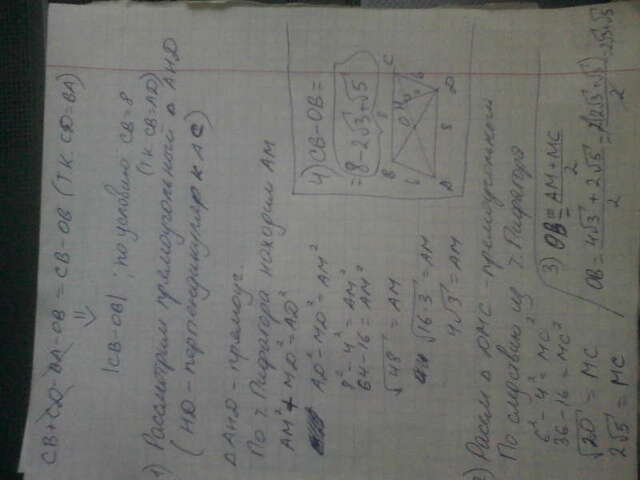 CB+CD-BA-OB = CB-OB (т.к. CD=BA)
|CB-OB| ; по условию CB=8
(т.к. CB=AD)
1) Рассмотрим прямоугольный Δ AHD
(HD - перпендикуляр к AC)
ΔAHD - прямоуг.
По т. Пифагора находим AM
AM² + MD² = AD²
AD² - MD² = AM²
8² - 4² = AM²
64 - 16 = AM²
√48 = AM
√16·3 = AM
4√3 = AM
2) Рассм Δ DMC - прямоугольный
По следствию из т. Пифагора
6² - 4² = MC²
36 - 16 = MC²
√20 = MC
2√5 = MC
3) OB = AM + MC
2
OB = 4√3 + 2√5 = 2(2√3 + √5) = 2√3+√5
2 2
4) CB - OB =
= 8 - 2√3 + √5
B C
O
6 6
A 8 D